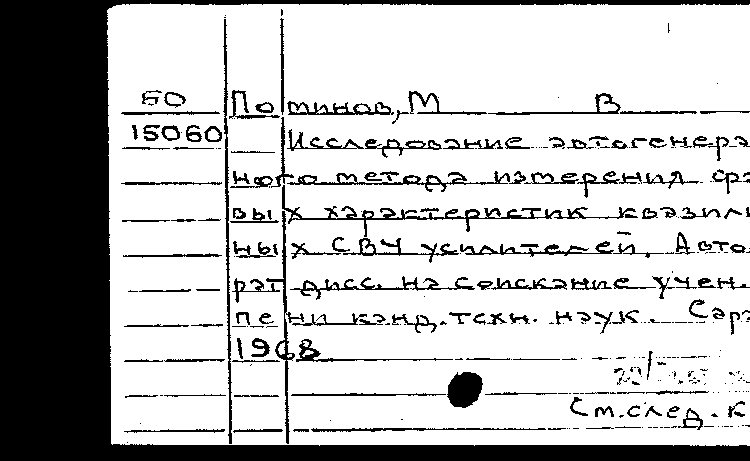 БО Поминов, М В
15060 Исследование автогенера
ного метода измерения сра
вых характеристик квазили
ных СВЧ усилителей. Авто
рат дисс. на соискание учен.
пени канд. техн. наук. Сара
1968
См. след. к